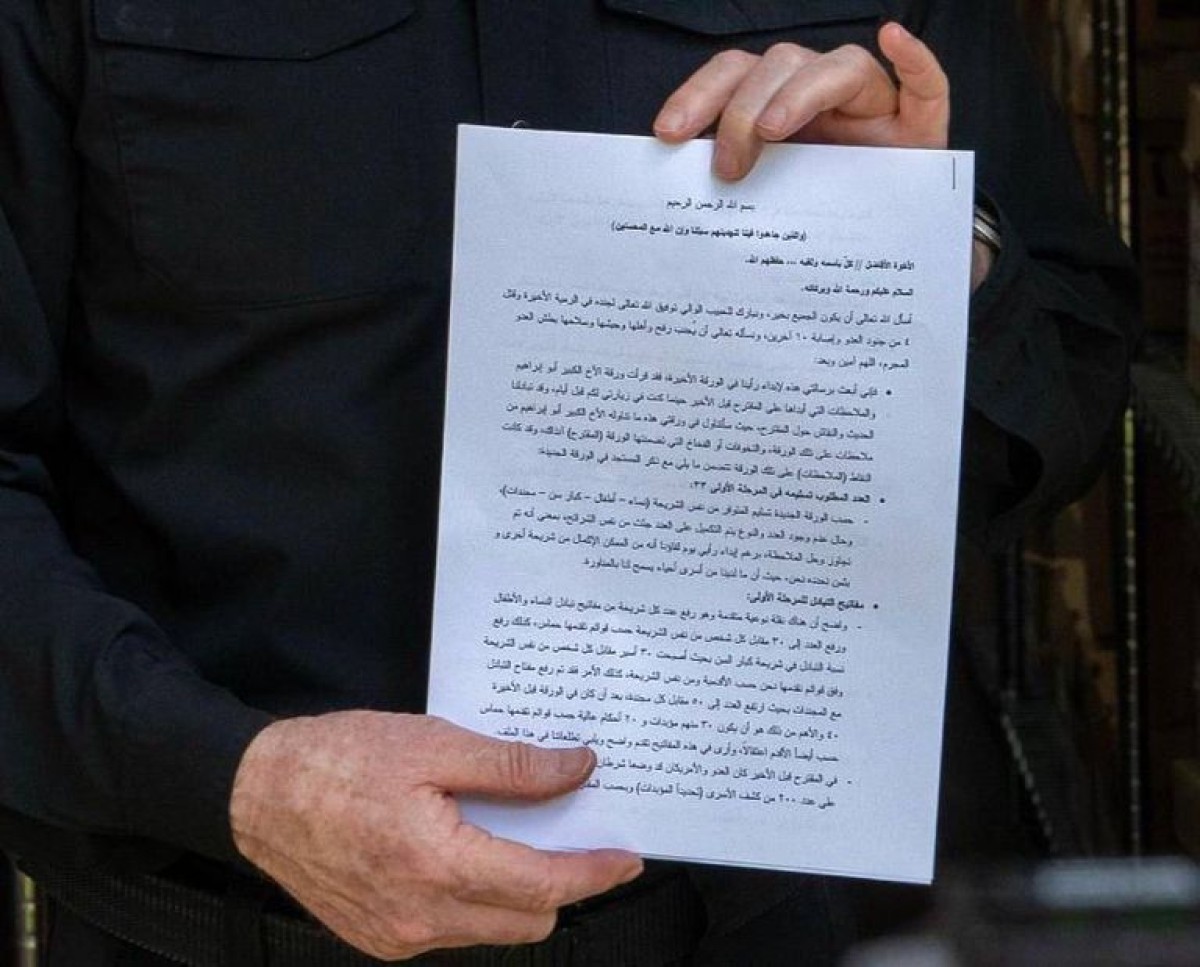 بسم الله الرحمن الرحيم
(والذين جاهدوا فينا لنهدينهم سبلنا وإن الله مع المحسنين)
الأخوة الأفاضل // كلّ باسمه ولقبه ... حفظهم الله.
السلام عليكم ورحمة الله وبركاته.
أسأل الله تعالى أن يكون الجميع بخير، ونبارك الحبيب الوالي توفيق الله تعالى لجنده في الرمية الأخيرة وقتل
٤ من جنود العدو وإصابة ١٠ آخرين، ونسأله تعالى أن يُجنب رفح وأهلها وجيشها وسلاحها بطش العدو
المجرم، اللهم آمين وبعد:
• فإني أبعث برسالتي هذه لإبداء رأينا في الورقة الأخيرة، فقد قرأت ورقة الأخ الكبير أبو إبراهيم
والملاحظات التي أبداها على المقترح قبل الأخير حينما كنت في زيارتي لكم قبل أيام، وقد تبادلنا
الحديث والنقاش حول المقترح، حيث سأتناول في ورقتي هذه ما تناوله الأخ الكبير أبو إبراهيم من
ملاحظات على تلك الورقة، والتخوفات أو الفخاخ التي تضمنتها الورقة (المقترح) آنذاك، وقد كانت
النقاط (الملاحظات) على تلك الورقة تتضمن ما يلي مع ذكر المستجد في الورقة الجديدة:
• العدد المطلوب تسليمه في المرحلة الأولى ٣٣:
- حسب الورقة الجديدة تسليم المتوفر من نفس الشريحة (نساء – أطفال – كبار سن – مجندات)،
وحال عدم وجود العدد والنوع يتم التكميل على العدد جثث من نفس الشرائح، بمعنى أنه تم
تجاوز وحل الملاحظة، برغم إبداء رأيي يوم لقاؤنا أنه من الممكن الإكمال من شريحة أخرى و
بثمن نحدده نحن، حيث أن ما لدينا من أسرى أحياء يسمح لنا بالمناورة.
• مفاتيح التبادل للمرحلة الأولى:
- واضح أن هناك نقلة نوعية متقدمة وهو رفع عدد كل شريحة من مفاتيح تبادل النساء والأطفال
ورفع العدد إلى ٣٠ مقابل كل شخص من نفس الشريحة حسب قوائم تقدمها حماس، كذلك رفع
نسبة التبادل في شريحة كبار السن بحيث أصبحت ٣٠ أسير مقابل كل شخص من نفس الشريحة
وفق قوائم نقدمها نحن حسب الأقدمية ومن نفس الشريحة، كذلك الأمر فقد تم رفع مفتاح التبادل
مع المجندات بحيث ارتفع العدد إلى ٥٠ مقابل كل مجندة، بعد أن كان في الورقة قبل الأخيرة
٤٠ والأهم من ذلك هو أن يكون ٣٠ منهم مؤبدات و ٢٠ أحكام عالية حسب قوائم تقدمها حماس
حسب أيضاً الأقدم اعتقالاً، وأرى في هذه المفاتيح تقدم واضح ويلبي تطلعاتنا في هذا الملف.
- في المقترح قبل الأخير كان العدو والأمريكان قد وضعا شرطان
على عدد ٢٠٠ من كشف الأسرى (تحديداً المؤبدات) وبحسب